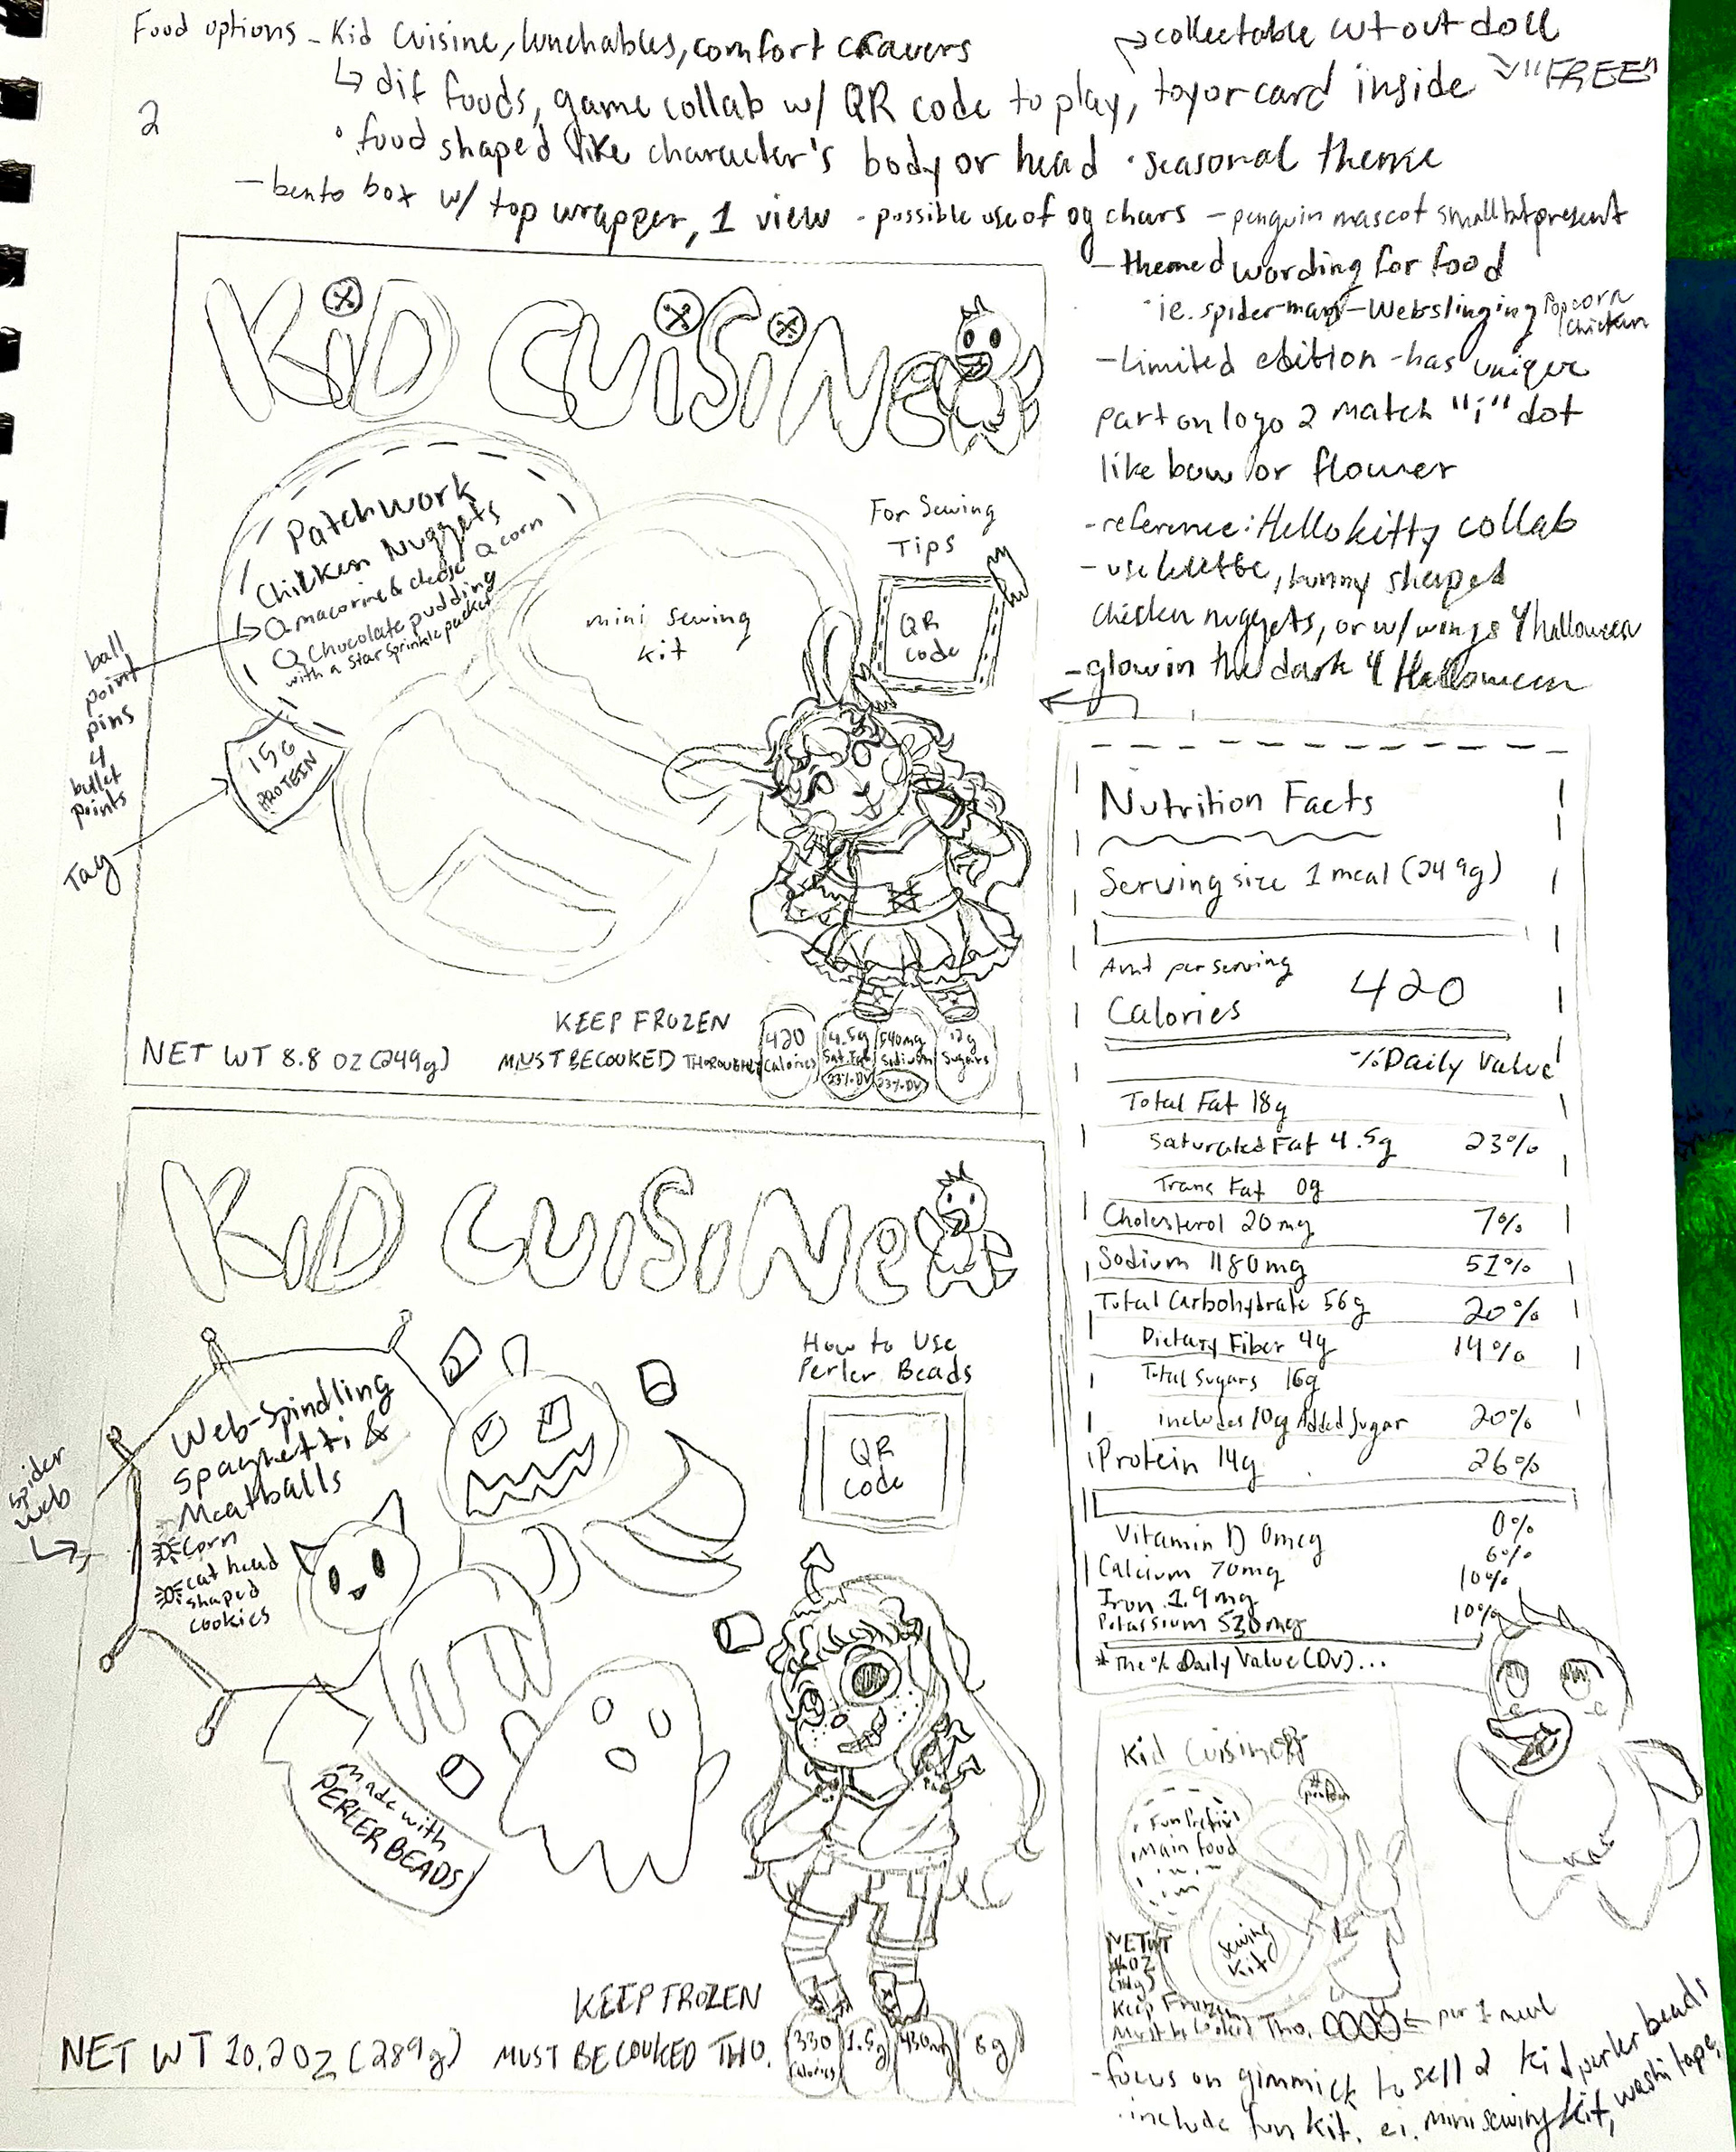 Food options - Kid Cuisine, lunchables, comfort cravers
↳ dif foods, game collab w/ QR code to play, toy or card inside
→ collectable cut out doll
"FREE"
2
• food shaped like character's body or head • seasonal theme
- bento box w/ top wrapper, 1 view - possible use of og chars - penguin mascot small but present
- themed wording for food
• ie. spiderman - Webslinging Popcorn chicken
- Limited edition - has unique
part on logo 2 match "i" dot
like bow or flower
- reference: Hello kitty collab
- use bunny shaped
chicken nuggets, or w/ wings 4 halloween
- glow in the dark 4 Halloween
KiD CUiSiNe
Patchwork
Chicken Nuggets
macorine & cheese
corn
Chocolate pudding
with a star sprinkle packet
15G
PROTEIN
ball
point
pins
4
bullet
points
Tag
mini sewing
kit
For Sewing
Tips
QR
code
KEEP FROZEN
MUST BE COOKED THOROUGHLY
NET WT 8.8 OZ (249g)
420
Calories
4.5g
Sat. Fat
23% DV
540mg
Sodium
23% DV
12g
Sugars
Nutrition Facts
Serving size 1 meal (249g)
Amt per serving
Calories 420
% Daily Value
Total Fat 18g
Saturated Fat 4.5g 23%
Trans Fat 0g
Cholesterol 20mg 7%
Sodium 1180mg 51%
Total Carbohydrate 56g 20%
Dietary Fiber 4g 14%
Total Sugars 16g
includes 10g Added Sugar 20%
Protein 14g 26%
Vitamin D 0mcg 0%
Calcium 70mg 6%
Iron 1.9mg 10%
Potassium 530mg 10%
* The % Daily Value (DV)...
KiD CUiSiNe
Web-Spindling
Spaghetti &
Meatballs
Corn
cat head
shaped
cookies
spider
web
Made with
PERLER BEADS
How to Use
Perler Beads
QR
code
KEEP FROZEN
MUST BE COOKED THO.
NET WT 10.2 OZ (289g)
330
Calories
1.5g
430mg
8g
Kid Cuisine
Fun Prefix
Main food
# protein
Sewing
Kit
NET WT
#OZ
(#g)
Keep Frozen
Must be Cooked Tho.
← per 1 meal
- focus on gimmick to sell 2 kid
• include fun kit. ei. mini sewing kit, washi tape, perler beads